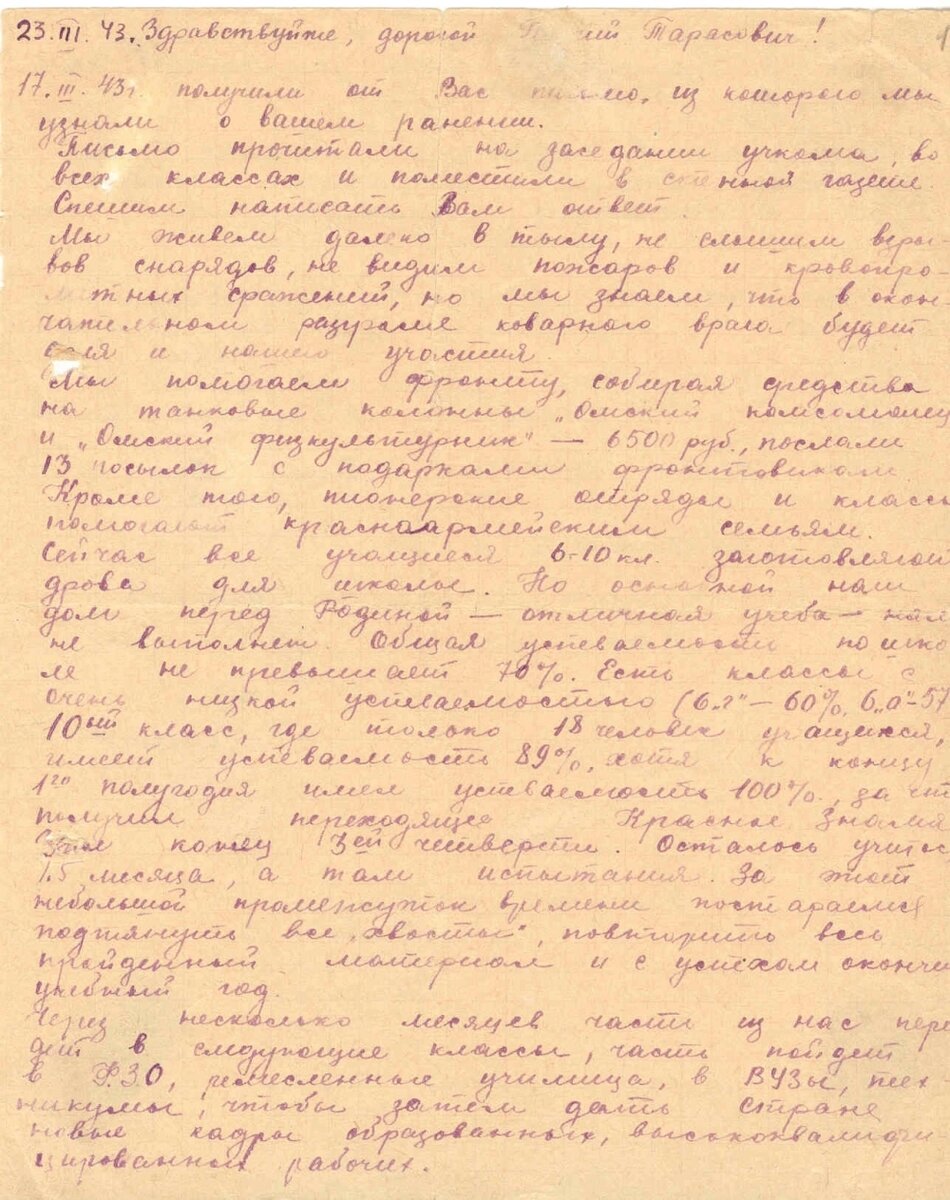 23.III.43. Здравствуйте, дорогой Тарасович!
17.III.43г. получили от Вас письмо, из которого мы
узнали о вашем ранении.
Письмо прочитали на заседании учкома, во
всех классах и поместили в стенной газете.
Спешим написать Вам ответ.
Мы живем далеко в тылу, не слышим взры-
вов снарядов, не видим пожаров и кровопро-
литных сражений, но мы знаем, что в окон
чательном разгроме коварного врага будет
доля и нашего участия.
Мы помогаем фронту, собирая средства
на танковые колонны „Омский комсомолец
и „Омский физкультурник" — 6500 руб., послали
13 посылок с подарками фронтовикам
Кроме того, пионерские отряды и классы
помогают красноармейским семьям.
Сейчас все учащиеся 6-10 кл. заготовляют
дрова для школы. Но основной наш
долг перед Родиной — отличная учеба — нами
не выполнен. Общая успеваемость по шко
ле не превышает 70%. Есть классы с
очень низкой успеваемостью (6„г" — 60%, 6„а"-57
10ый класс, где только 18 человек учащихся,
имеет успеваемость 89%, хотя к концу
1го полугодия имел успеваемость 100%, за что
получил переходящее Красное Знамя
конец 3ей четверти. Осталось учиться
1.5 месяца, а там испытания. За этот
небольшой промежуток времени постараемся
подтянуть все „хвосты", повторить весь
пройденный материал и с успехом окончи
учебный год.
Через несколько месяцев часть из нас пере
дет в следующие классы, часть пойдет
в ФЗО, ремесленные училища, в ВУЗы, тех
никумы, чтобы затем дать стране
новые кадры образованных, высококвалифи
цированных рабочих.